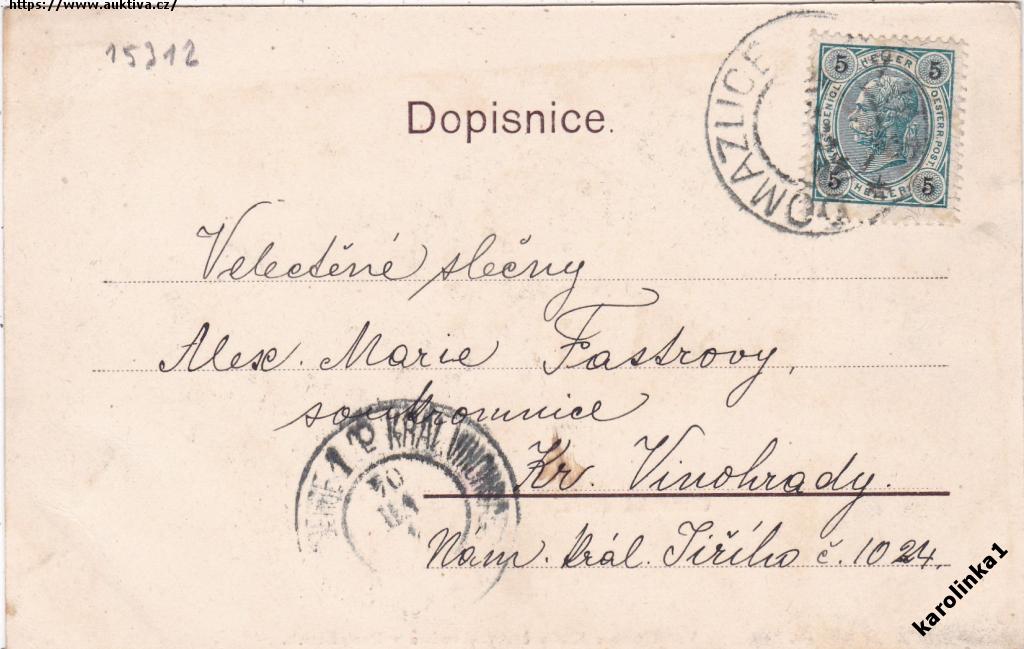 https://www.auktiva.cz/
15312
Dopisnice.
DOMAZLICE
5 HELLER 5
OESTERR. POST.
5 HELLER 5
Velectěné slečny
Alex. Marie Fastrovy,
soukromnice
Kr. Vinohrady.
Nám. Král. Jiřího č. 1024.
1 KRÁL. VINOHRADY
karolinka1